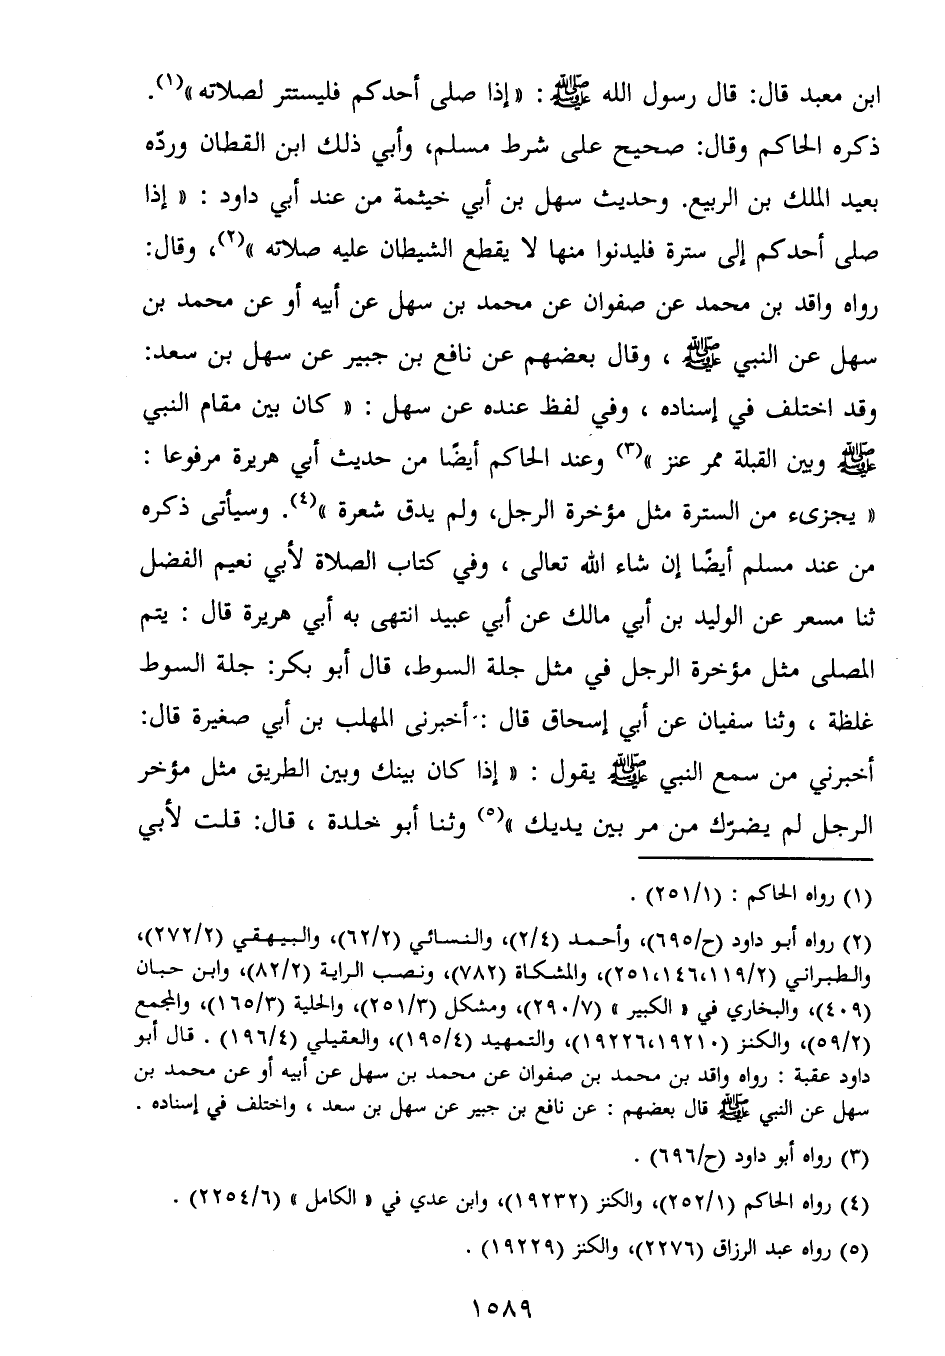 ابن معبد قال: قال رسول الله ﷺ : « إذا صلى أحدكم فليستتر لصلاته »(١).
ذكره الحاكم وقال: صحيح على شرط مسلم، وأبي ذلك ابن القطان وردّه
بعيد الملك بن الربيع. وحديث سهل بن أبي خيثمة من عند أبي داود : « إذا
صلى أحدكم إلى سترة فليدنوا منها لا يقطع الشيطان عليه صلاته »(٢)، وقال:
رواه واقد بن محمد عن صفوان عن محمد بن سهل عن أبيه أو عن محمد بن
سهل عن النبي ﷺ ، وقال بعضهم عن نافع بن جبير عن سهل بن سعد:
وقد اختلف في إسناده ، وفي لفظ عنده عن سهل : « كان بين مقام النبي
ﷺ وبين القبلة ممر عنز »(٣) وعند الحاكم أيضًا من حديث أبي هريرة مرفوعا :
« يجزىء من السترة مثل مؤخرة الرجل، ولم يدق شعرة »(٤). وسيأتى ذكره
من عند مسلم أيضًا إن شاء الله تعالى ، وفي كتاب الصلاة لأبي نعيم الفضل
ثنا مسعر عن الوليد بن أبي مالك عن أبي عبيد انتهى به أبي هريرة قال : يتم
المصلى مثل مؤخرة الرجل في مثل جلة السوط، قال أبو بكر: جلة السوط
غلظة ، وثنا سفيان عن أبي إسحاق قال : أخبرنى المهلب بن أبي صغيرة قال:
أخبرني من سمع النبي ﷺ يقول : « إذا كان بينك وبين الطريق مثل مؤخر
الرجل لم يضرّك من مر بين يديك »(٥) وثنا أبو خلدة ، قال: قلت لأبي
(١) رواه الحاكم : (٢٥١/١) .
(٢) رواه أبو داود (ح/٦٩٥)، وأحمد (٢/٤)، والنسائي (٦٢/٢)، والبيهقي (٢٧٢/٢)،
والطبراني (١١٩/٢،١٤٦،٢٥١)، والمشكاة (٧٨٢)، ونصب الراية (٨٢/٢)، وابن حبان
(٤٠٩)، والبخاري في « الكبير » (٢٩٠/٧)، ومشكل (٢٥١/٣)، والحلية (١٦٥/٣)، والمجمع
(٥٩/٢)، والكنز (١٩٢١٠،١٩٢٢٦)، والتمهيد (١٩٥/٤)، والعقيلي (١٩٦/٤) . قال أبو
داود عقبة : رواه واقد بن محمد بن صفوان عن محمد بن سهل عن أبيه أو عن محمد بن
سهل عن النبي ﷺ قال بعضهم : عن نافع بن جبير عن سهل بن سعد ، واختلف في إسناده .
(٣) رواه أبو داود (ح/٦٩٦) .
(٤) رواه الحاكم (٢٥٢/١)، والكنز (١٩٢٣٢)، وابن عدي في « الكامل » (٢٢٥٤/٦) .
(٥) رواه عبد الرزاق (٢٢٧٦)، والكنز (١٩٢٢٩) .
١٥٨٩